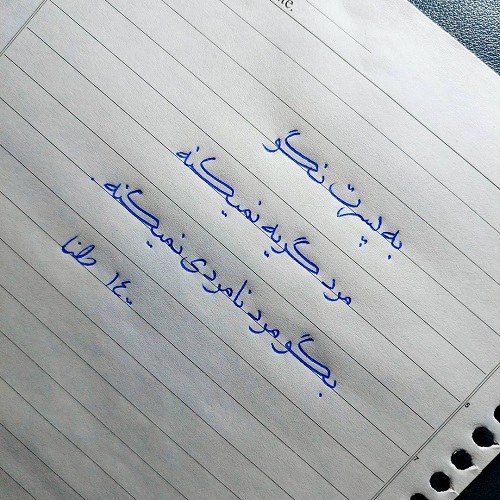 به پسرت نگو
مرد گریه نمیکنه
بگو مرد نامردی نمیکنه.